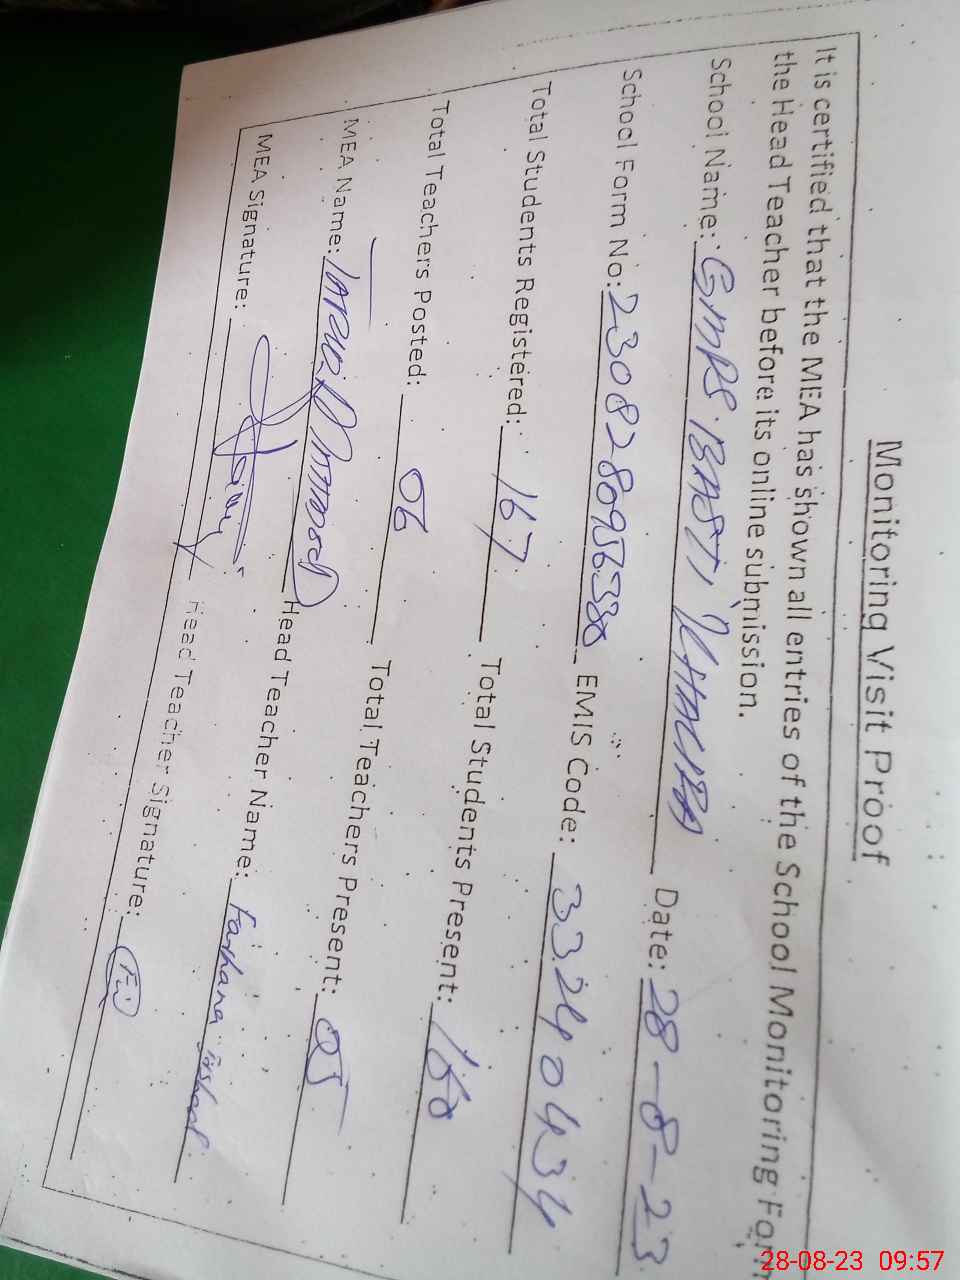 Monitoring Visit Proof
It is certified that the MEA has shown all entries of the School Monitoring Form
the Head Teacher before its online submission.
School Name: GMPS. BASTI Date: 28-8-23
School Form No: EMIS Code: 33240434
Total Students Registered: 167 Total Students Present:
Total Teachers Posted: 06 Total Teachers Present: 05
MEA Name: Head Teacher Name: Farhana
MEA Signature: Head Teacher Signature:
28-08-23 09:57